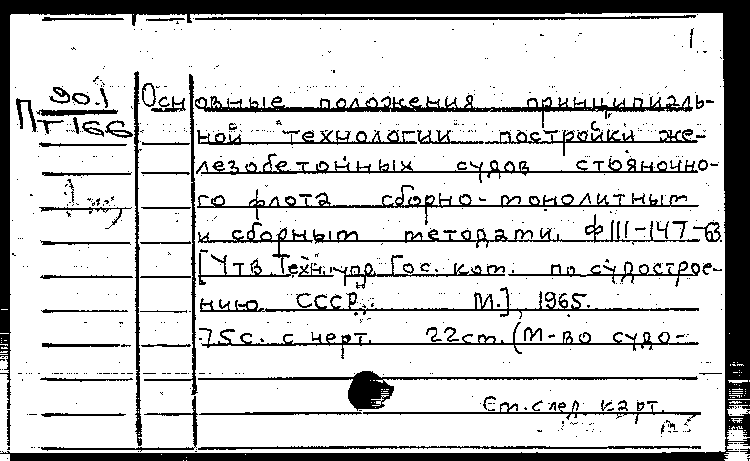 1
90.1
П Т 166
Основные положения принципиаль-
ной технологии постройки же-
лезобетонных судов стояночно-
го флота сборно-монолитным
и сборным методами. ФIII-147-63
[Утв. Техн. упр. Гос. ком. по судострое-
нию СССР. М.], 1965.
75с. с черт. 22см. (М-во судо-
См. след. карт.